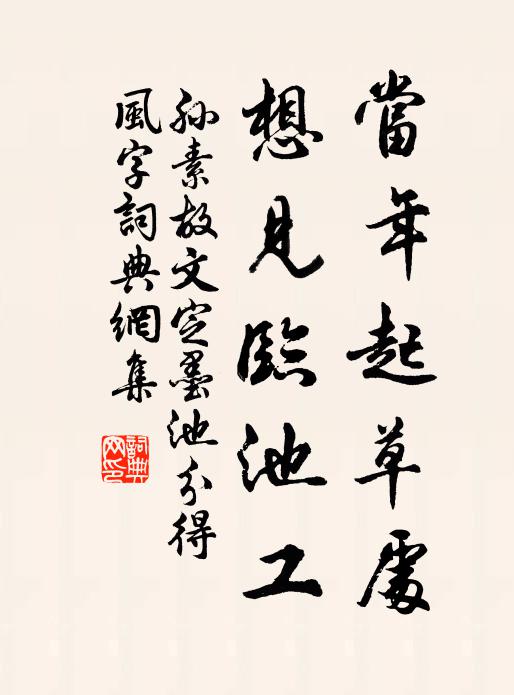 當年起草處
想見臨池工
孫素故文定墨池分得
風字詞典網集
詞典网印